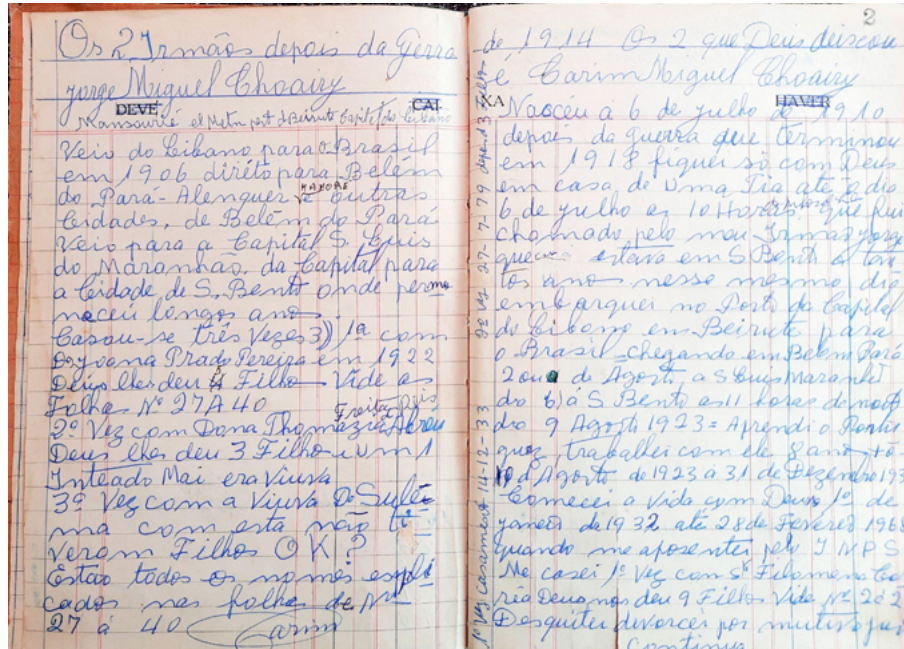 Os 2 Irmãos depois da Gerra
Jorge Miguel Choairy
DEVE CAI
Mansourie el Metn port d Beirute Capital do Libano
Veio do Libano para o Brasil
em 1906 diréto para Belém
do Pará-Alenquer e outras
Cidades, de Belém do Pará
Veio para a Capital S. Luis
do Maranhão, da Capital para
a Cidade de S. Bento onde perma
neceu longos ano
Casou-se três Vezes 3) 1ª com
Joana Prado Pereira em 1922
Deus lhes deu Filho Vide as
Folhas Nº 27 A 40
Freitas Reis
2ª Vez com Dona Thomazia
Deus lhes deu 3 Filho e um 1
Inteado Mai era Viuva
3ª Vez com a Viuva Dª Sulei
ma com esta não ti
veram Filhos O K ?
Estão todos os nomes expli
cados nas folhas de Nº
27 á 40 Carim
2
de 1914 Os 2 que Deus deixou
é Carim Miguel Choairy
XA HAVER
Nasceu á 6 de Julho de 1910
depois da guerra que terminou
em 1918 fiquei só com Deus
em casa de uma Tia até o dia
6 de Julho as 10 Horas que fui
chamado pelo meu Irmão Jorge
que estava em S Bento a tan
tos ano nesse mesmo dia
embarquei no Porto da Capital
do Libano em Beirute para
o Brasil = chegando em Belem Pará
2 de Agosto, a S Luis Maranhã
do 6) á S. Bento as 11 horas da noit
do 9 Agosto 1923 = Aprendi o Portu
guez, trabalhei com ele 8 ano
10 d Agosto de 1923 á 31 de Dezembro 193
Comecei a Vida com Deus 1º de
Janeiro de 1932 até 28 de Fevereiro 1968
quando me aposentei pelo I N P S
Me casei 1ª Vez com Sª Filomena Co
rêa Deus nos deu 9 Filhos Vide Nº 2 á 2
Desquitei divorcei por mutivo
continua
1ª Vez Casament 14-12-33 2ª Vez 27-7-79